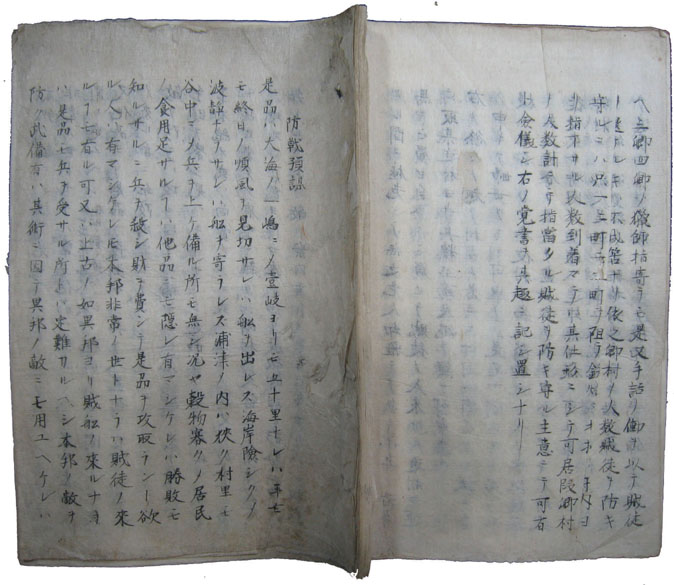 ヘ三郷四郷ノ猟師招寄テモ是又手詰リ御 以テ賊徒
ノ 不成筈ナリ依之郷村ノ人数賊徒ヲ防キ
守ルニハ只一二町 町ヲ阻
指 人数到着マテハ其仕形ニシテ可居段郷村
ノ人数計ニテ指當タル賊徒ヲ防キ守ル主意ニテ可有
此僉儀ニ右ノ覚書 其趣ヲ記シ置シナリ
防戦預謀
是品ハ大海ノ一嶋ニシテ壹岐ヨリモ五十里ナレハ
モ終日ノ順風ヲ見切サレハ船ヲ出レス海岸險シクノ
波静ナラサレハ船ヲ寄ラレス浦津ノ内ハ狭ク村里モ
谷中ニメ兵ヲ上ケ備ル所モ無シ况ヤ穀物寡クノ居民
ノ食用足サル丁ハ他品ニモ隠レ有マシケレハ勝敗モ
知ルサルニ兵ヲ殺シ財ヲ費シテ是品ヲ攻取ラント欲
ル人ハ有マシケレトモ本邦非常ノ世トナラハ賊徒ノ來
ル丁モ有ル可又ハ上古ノ如異邦ヨリ賊船ノ來ルナラ
ハ是品モ兵ヲ受サル所トハ定難カルヘシ本邦ノ敵ヲ
防ク此備有ハ其術ニ因テ異邦ノ敵ニモ用ユヘケレハ